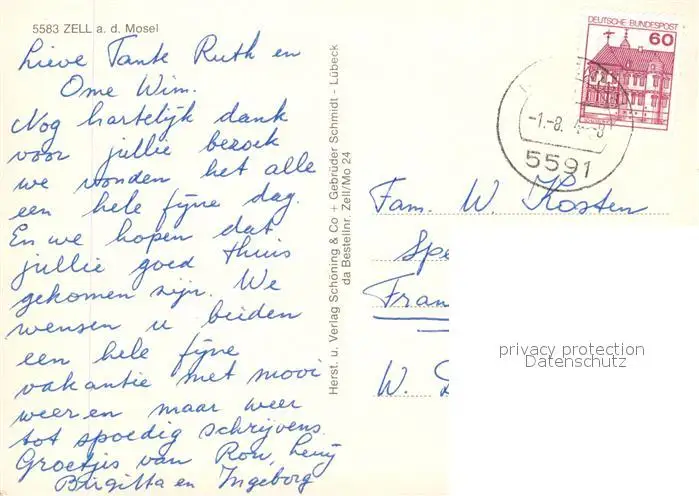 5583 ZELL a. d. Mosel
Lieve Tante Ruth en
Ome Wim.
Nog hartelijk dank
voor jullie bezoek
we vonden het alle
een hele fijne dag.
En we hopen dat
jullie goed thuis
gekomen zijn. We
wensen u beiden
een hele fijne
vakantie met mooi
weer en maar weer
tot spoedig schrijvens.
Groetjes van Ron, Leny
Birgitta en Ingeborg
Herst. u. Verlag Schöning & Co + Gebrüder Schmidt - Lübeck
da Bestellnr. Zell/Mo 24
DEUTSCHE BUNDESPOST
60
-1.-8.
5591
Fam. W. Kosten
Spe
Fran
W.
privacy protection
Datenschutz